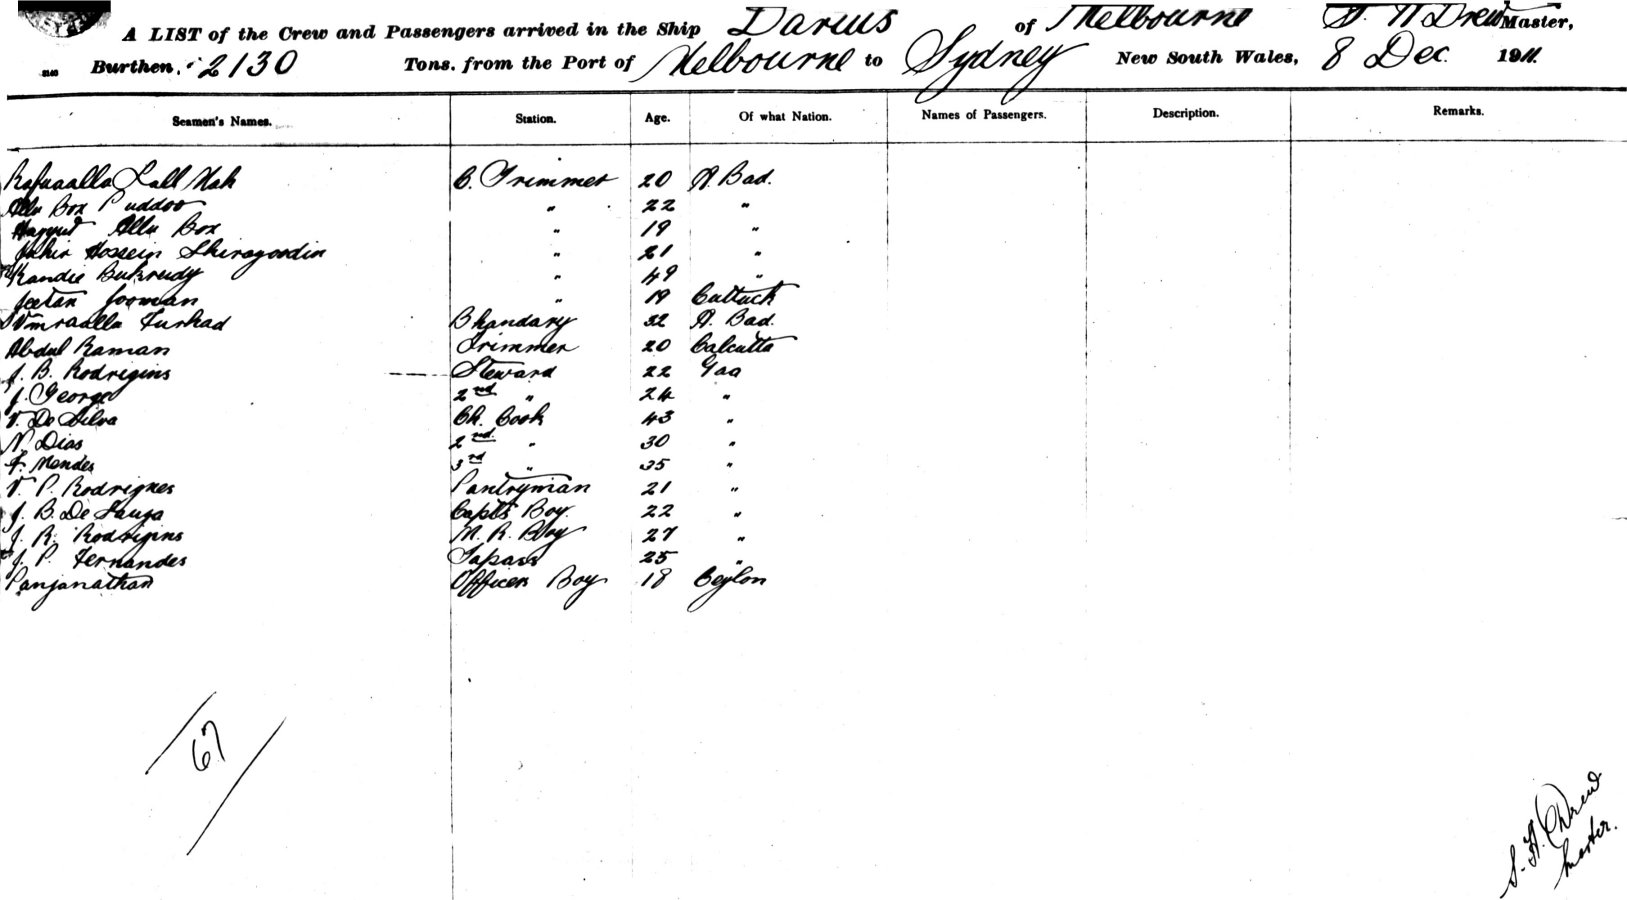 A LIST of the Crew and Passengers arrived in the Ship Darius of Melbourne S. H Drew Master,
Burthen, 2130 Tons. from the Port of Melbourne to Sydney New South Wales, 8 Dec. 1911.
Seamen's Names. Station. Age. Of what Nation. Names of Passengers. Description. Remarks.
Lall C. Trimmer 20 A. Bad.
Allu Box Puddoo " 22 "
Allu Box " 19 "
Hossein " 21 "
Kandie " 49 "
Jooman " 19 Cuttack
Furhad Bhandary 32 A. Bad.
Abdul Raman Trimmer 20 Calcutta
J. B. Rodrigins Steward 22 Goa
J. George 2nd " 24 "
V. De Silva Ch. Cook 43 "
N. Dias 2nd " 30 "
F. Mendes 3rd " 35 "
V. P. Rodrigues Pantryman 21 "
J. B. De Sauza Capts Boy. 22 "
J. R. Rodrigins M. R. Boy 27 "
J. P. Fernandes Topass 25 "
Panjanathan Officers Boy 18 Ceylon
67
S. H. Drew
Master.